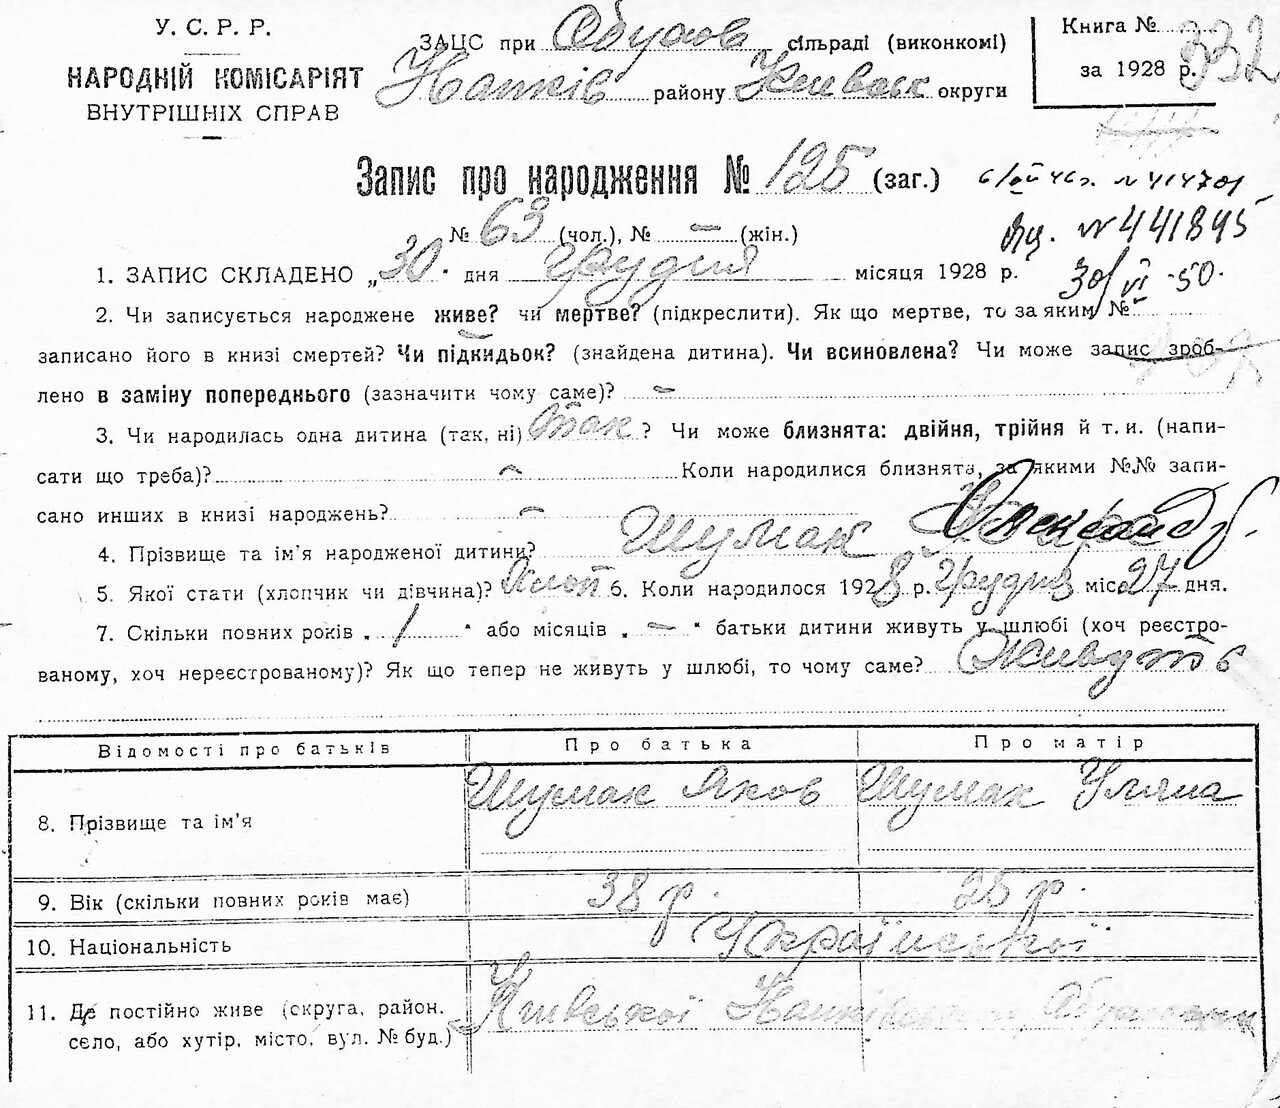 У. С. Р. Р.
НАРОДНІЙ КОМІСАРІЯТ
ВНУТРІШНІХ СПРАВ
ЗАЦС при сільраді (виконкомі)
району округи
Книга № 332
за 1928 р.
Запис про народження № 125 (заг.)
№ 63 (чол.), № — (жін.)
№ 441845
30/VI -50.
1. ЗАПИС СКЛАДЕНО „30" дня Грудня місяця 1928 р.
2. Чи записується народжене живе? чи мертве? (підкреслити). Як що мертве, то за яким №
записано його в книзі смертей? Чи підкидьок? (знайдена дитина). Чи всиновлена? Чи може запис зроб-
лено в заміну попереднього (зазначити чому саме)? —
3. Чи народилась одна дитина (так, ні) Так ? Чи може близнята: двійня, трійня й т. и. (напи-
сати що треба)? — Коли народилися близнята, за якими №№ запи-
сано инших в книзі народжень? —
4. Прізвище та ім'я народженої дитини? Шумак
5. Якої статі (хлопчик чи дівчина)? Хлоп 6. Коли народилося 1928 р. Грудня міс. 27 дня.
7. Скільки повних років „ 1 " або місяців „ — " батьки дитини живуть у шлюбі (хоч реєстро-
ваному, хоч нереєстрованому)? Як що тепер не живуть у шлюбі, то чому саме? Живуть
Відомості про батьків Про батька Про матір
8. Прізвище та ім'я Шумак Яков Шумак Уляна
9. Вік (скільки повних років має) 38 р. 25 р.
10. Національність Української
11. Де постійно живе (округа, район, Київської
село, або хутір, місто, вул. № буд.)